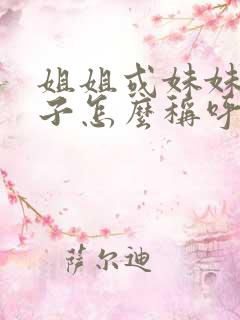 姐姐或妹妹
子怎麼稱呼
萨尔迪